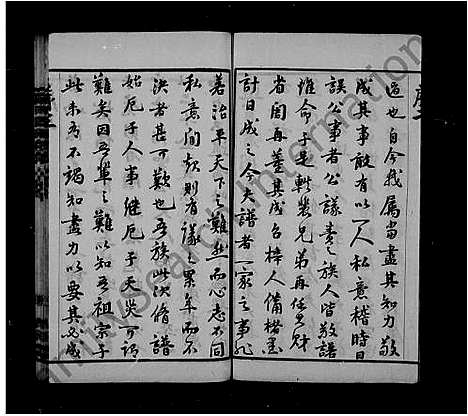 過也自今我属當盡其知力敬
成其事敢有以一人私意稽時日
誤公事者公議責之族人皆敬諾
維命于是軼裳兄弟再任其財
省闈再董其成各棒人備楮墨
計日成之今夫譜者一家之事非
若治平天下之難然而心志不同
私意間起則有議之累年而不
決者甚可歎也吾族此次脩譜
始厄于人事继厄于天災可謂
難矣因吾輩之難以知吾祖宗子
此未為不竭知盡力以要其必成